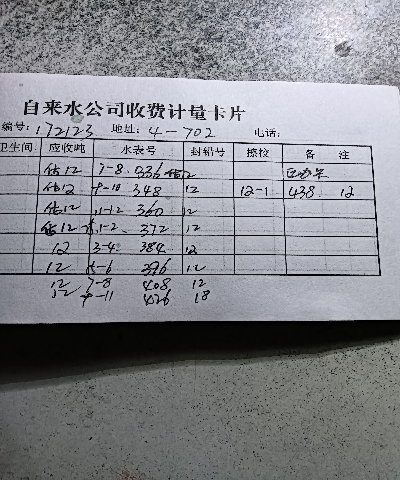 自来水公司收费计量卡片
编号: 172123 地址: 4-702 电话:
卫生间 应收吨 水表号 封铅号 擦校 备 注
估12 7-8 336 估12
估12 9-10 348 12 12-1 438 12
估12 11-12 360 12
估12 1-2 372 12
12 3-4 384 12
12 5-6 396 12
12 7-8 408 12
12 9-11 426 18